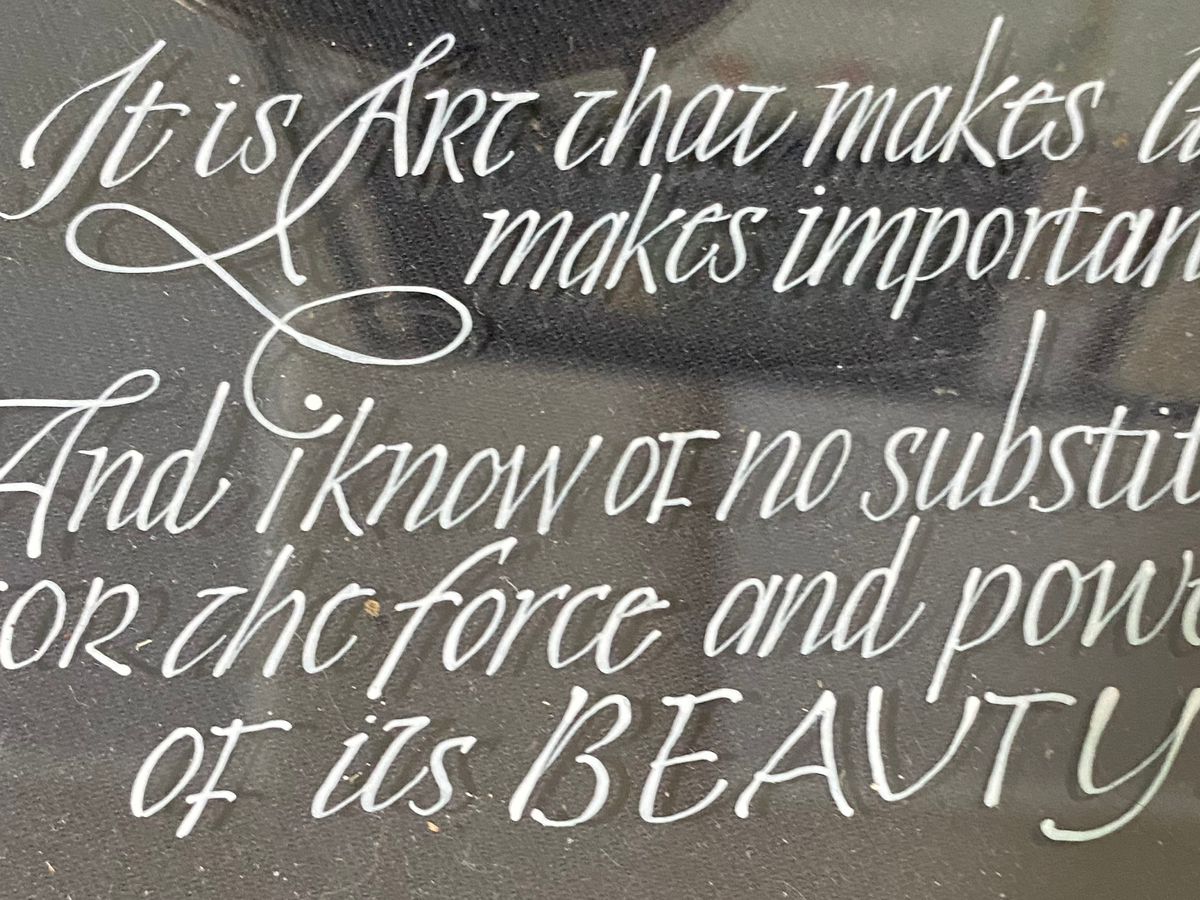 It is ART that makes
makes importan
And i know of no substit
for the force and powe
of its BEAUTY